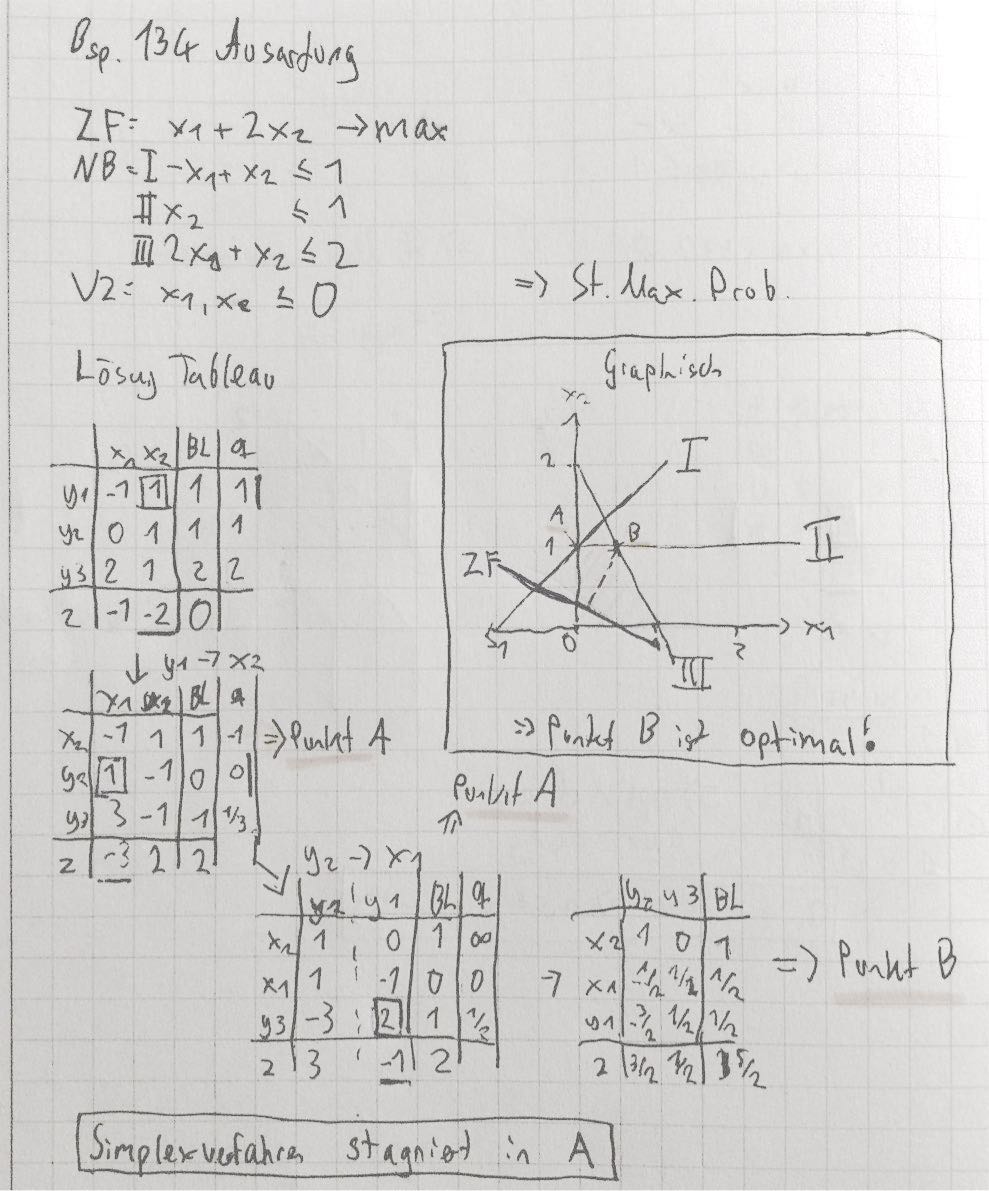 Bsp. 134 Ausartung
ZF: x1 + 2x2 → max
NB: I -x1 + x2 ≤ 1
II x2 ≤ 1
III 2x1 + x2 ≤ 2
x1, x2 ≤ 0
=> St. Max. Prob.
Lösung Tableau
x1 x2 BL q
y1 -1 1 1 1
y2 0 1 1 1
y3 2 1 2 2
z -1 -2 0
↓ y1 → x2
x1 BL q
x2 -1 1 1 -1 => Punkt A
y2 1 -1 0 0
y3 3 -1 1 1/3
z -3 2 2
Graphisch
x2
2
I
A
1
B
II
ZF
-1
0
2
x1
III
=> Punkt B ist optimal!
Punkt A
y2 → x1
y2 y1 BL q
x2 1 0 1 ∞
x1 1 -1 0 0
y3 -3 2 1 1/2
z 3 -1 2
→
y2 y3 BL
x2 1 0 1
x1 -1/2 1/2 1/2
y1 -3/2 1/2 1/2
z 3/2 1/2 5/2
=> Punkt B
Simplexverfahren stagniert in A